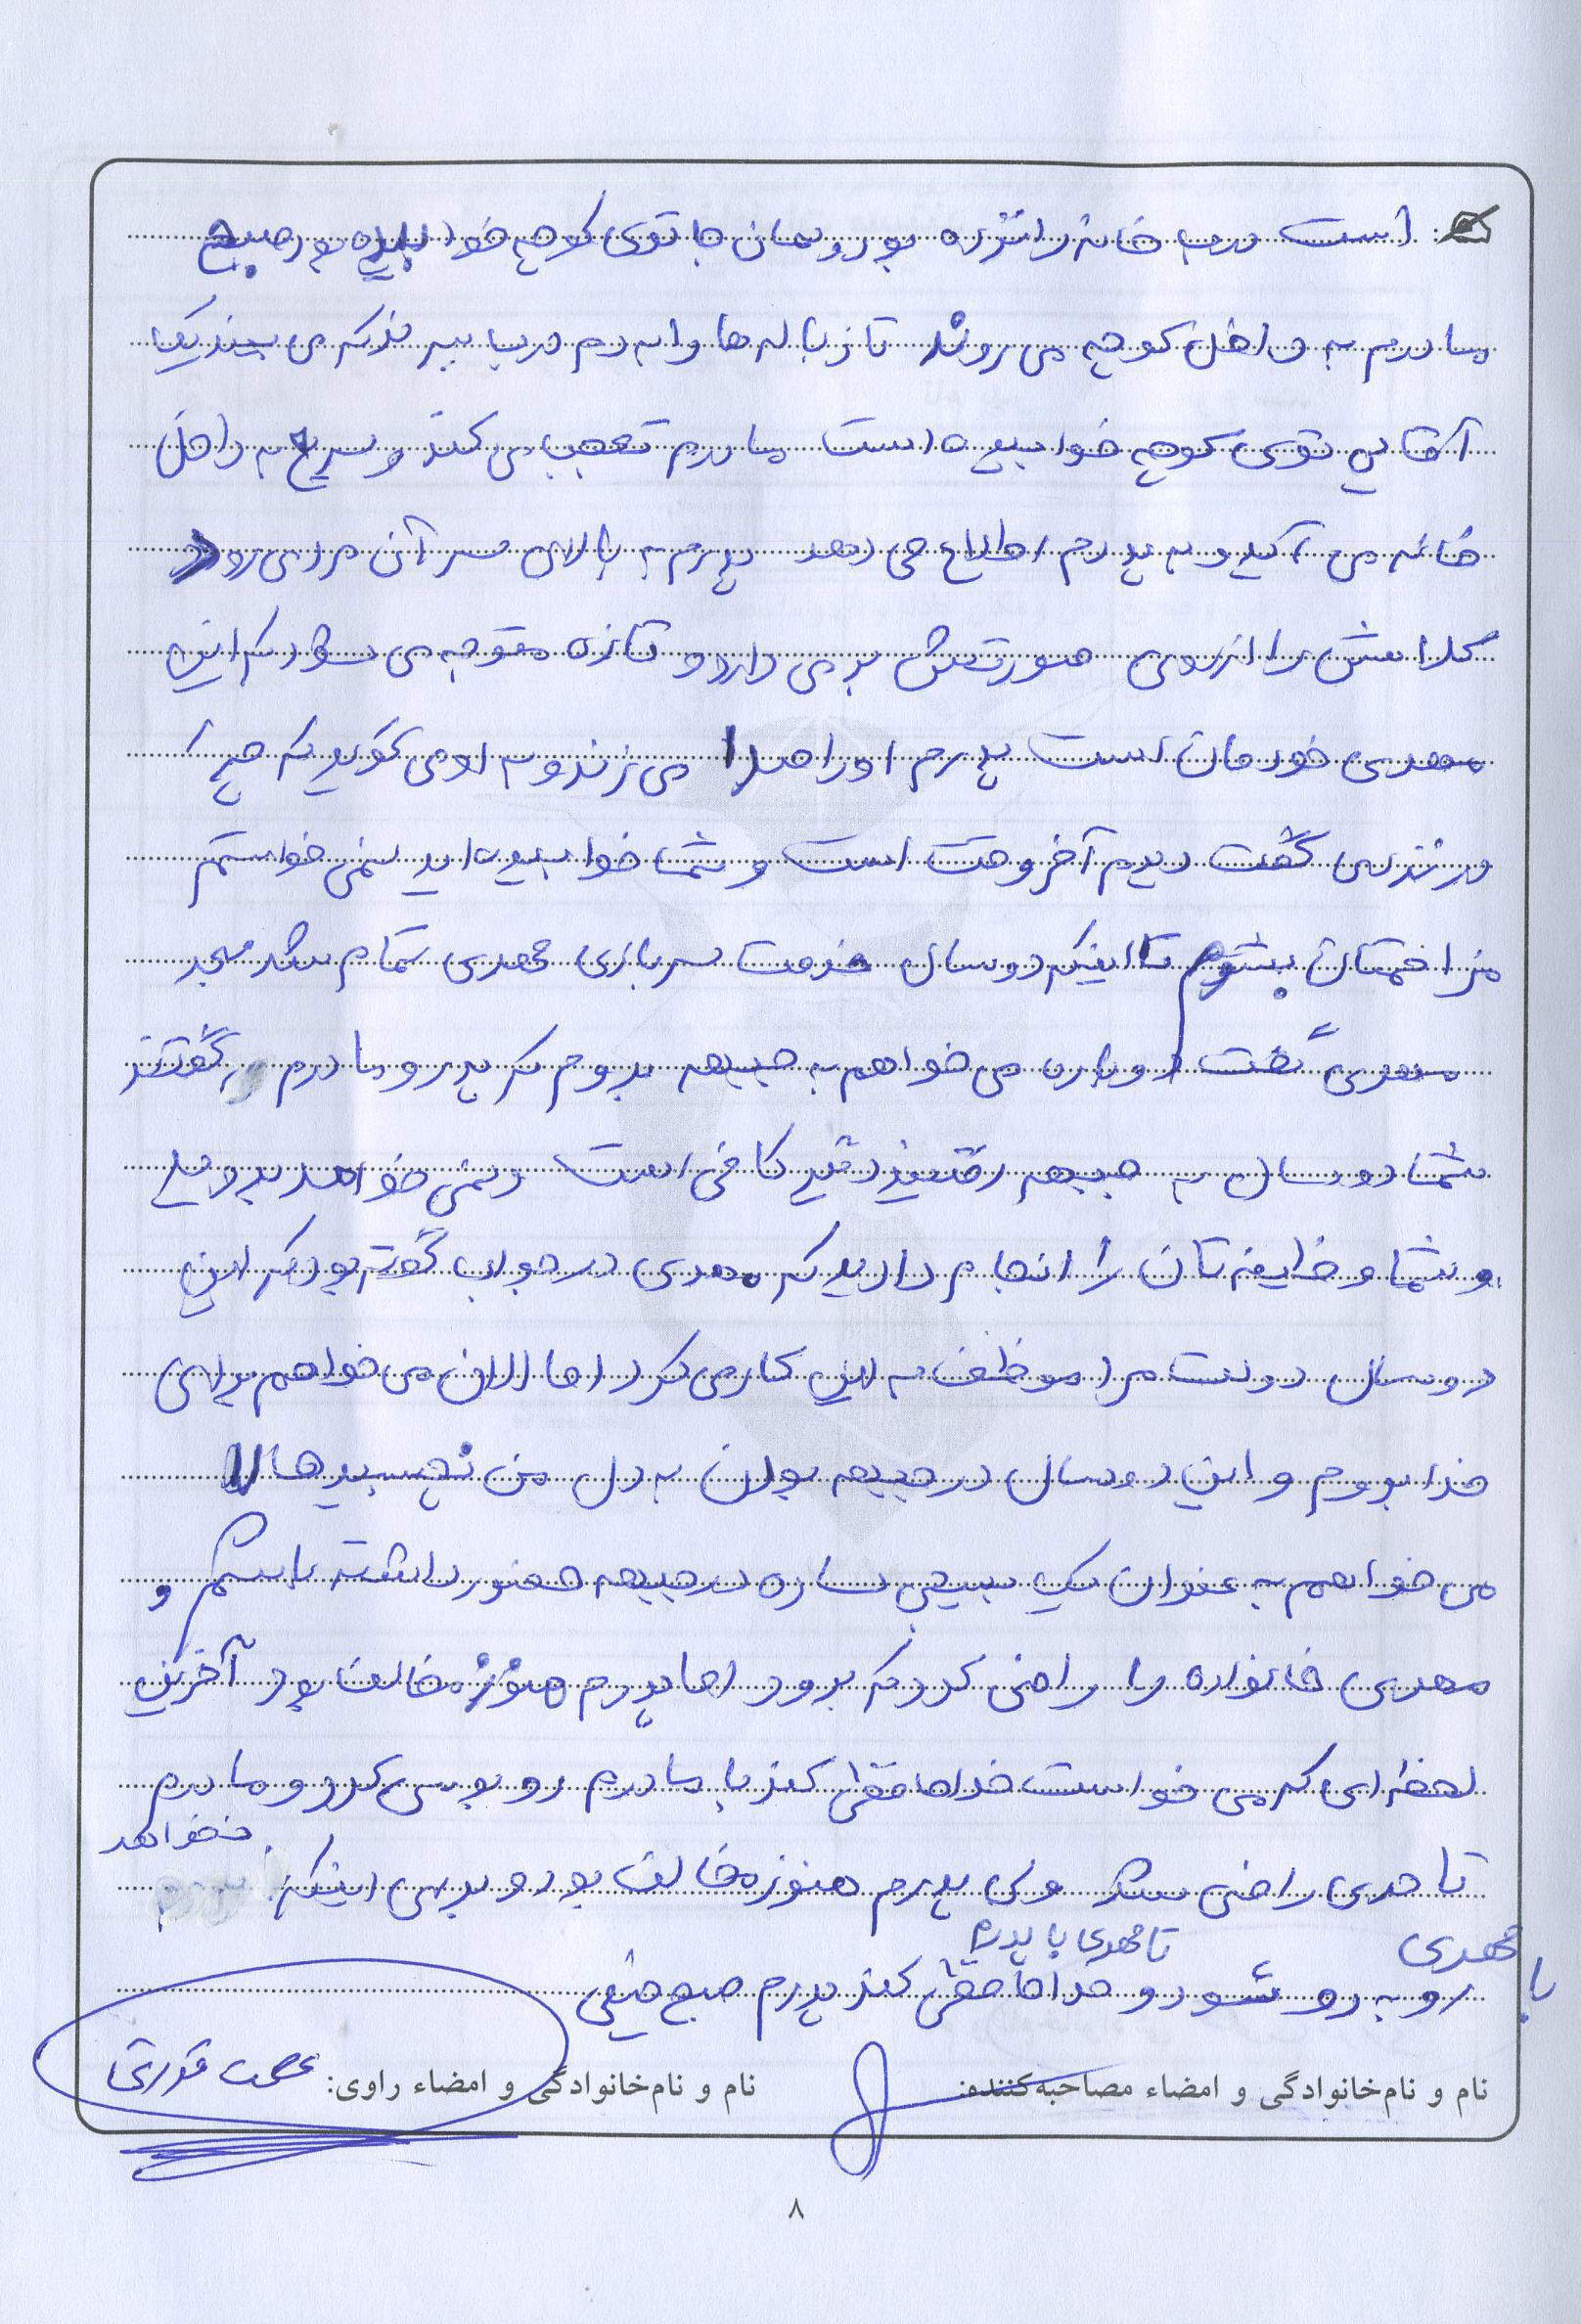 است درب خانه را نزده بود و همان جا توی کوچه خوابیده بود صبح
مادرم به داخل کوچه می روند تا زباله ها را به دم درب ببرند که می بیند یک
آقایی توی کوچه خوابیده است مادرم تعجب می کند و سریع به داخل
خانه می آید و به پدرم اطلاع می دهد پدرم به بالای سر آن مرد می رود
کلاهش را از روی صورتش بر می دارد و تازه متوجه می شود که این
مهدی خودمان است پدرم او را صدا می زند و به او می گوید که چرا
در نزدی گفت دیدم آخر وقت است و شما خوابیده اید نمی خواستم
مزاحمتان بشوم تا اینکه دو سال خدمت سربازی مهدی تمام شد مجدد
مهدی گفت دوباره می خواهم به جبهه بروم که پدر و مادرم گفتند
شما دو سال به جبهه رفتید دیگر کافی است و نمی خواهد بروید
و شما وظایفه تان را انجام دادید که مهدی در جواب گفته بود که این
دو سال دولت مرا موظف به این کار می کرد اما الان می خواهم برای
خدا بروم و این دو سال در جبهه بودن به دل من نچسبید حالا
می خواهم به عنوان یک بسیجی ساده در جبهه حضور داشته باشم و
مهدی خانواده را راضی کرد که برود اما پدرم هنوز مخالف بود آخرین
لحظه ای که می خواست خداحافظی کند با مادرم روبوسی کرد و مادرم
تا حدی راضی شد ولی پدرم هنوز مخالف بود و برای اینکه نخواهد
با مهدی رو به رو شود و تا مهدی با پدرم خداحافظی کند پدرم صبح خیلی
نام و نام‌خانوادگی و امضاء مصاحبه‌کننده: نام و نام‌خانوادگی و امضاء راوی: عصمت قدرتی
۸